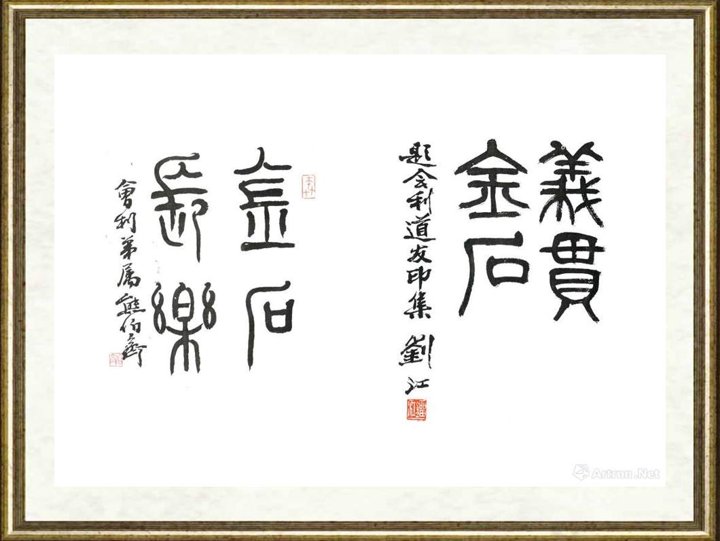 義貫
金石
題会利道友印集 劉江
金石
長樂
會利弟属 熊伯齊
Artron.Net